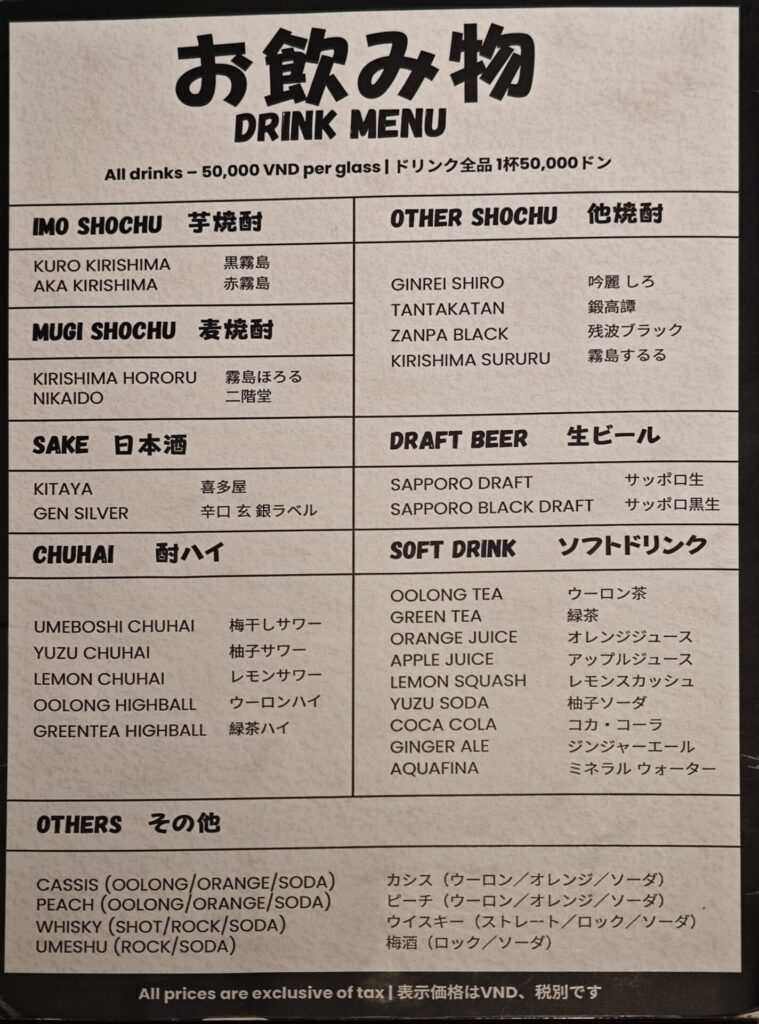 お飲み物
DRINK MENU
All drinks – 50,000 VND per glass | ドリンク全品 1杯50,000ドン
IMO SHOCHU 芋焼酎
KURO KIRISHIMA 黒霧島
AKA KIRISHIMA 赤霧島
MUGI SHOCHU 麦焼酎
KIRISHIMA HORORU 霧島ほろる
NIKAIDO 二階堂
SAKE 日本酒
KITAYA 喜多屋
GEN SILVER 辛口 玄 銀ラベル
CHUHAI 酎ハイ
UMEBOSHI CHUHAI 梅干しサワー
YUZU CHUHAI 柚子サワー
LEMON CHUHAI レモンサワー
OOLONG HIGHBALL ウーロンハイ
GREENTEA HIGHBALL 緑茶ハイ
OTHER SHOCHU 他焼酎
GINREI SHIRO 吟麗 しろ
TANTAKATAN 鍛高譚
ZANPA BLACK 残波ブラック
KIRISHIMA SURURU 霧島するる
DRAFT BEER 生ビール
SAPPORO DRAFT サッポロ生
SAPPORO BLACK DRAFT サッポロ黒生
SOFT DRINK ソフトドリンク
OOLONG TEA ウーロン茶
GREEN TEA 緑茶
ORANGE JUICE オレンジジュース
APPLE JUICE アップルジュース
LEMON SQUASH レモンスカッシュ
YUZU SODA 柚子ソーダ
COCA COLA コカ・コーラ
GINGER ALE ジンジャーエール
AQUAFINA ミネラル ウォーター
OTHERS その他
CASSIS (OOLONG/ORANGE/SODA) カシス（ウーロン／オレンジ／ソーダ）
PEACH (OOLONG/ORANGE/SODA) ピーチ（ウーロン／オレンジ／ソーダ）
WHISKY (SHOT/ROCK/SODA) ウイスキー（ストレート／ロック／ソーダ）
UMESHU (ROCK/SODA) 梅酒（ロック／ソーダ）
All prices are exclusive of tax | 表示価格はVND、税別です